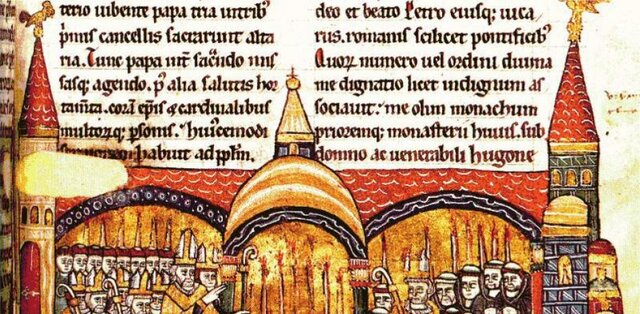 terio iubente papa tria in tribꝰ
pͥmis cancellis sacrarunt alta
ria. Tunc papa int̄ sac̄ndo mis
sasq; agendo. p⁹ alia salutis hor
tam̄ta. corā ep̄is & cardinalibus
multorq; ꝑsonis. huiꝰcemodi
habuit ad pl̄m.
deo et beato Petro eiusq; uica
rius. romanis scilicet pontificibꝰ
Quorꝫ numero uel ordini diuina
me dignatio licet indignum as
sociauit. me olim monachum
prioremq; monasterii huius. sub
domno ac uenerabili hugone